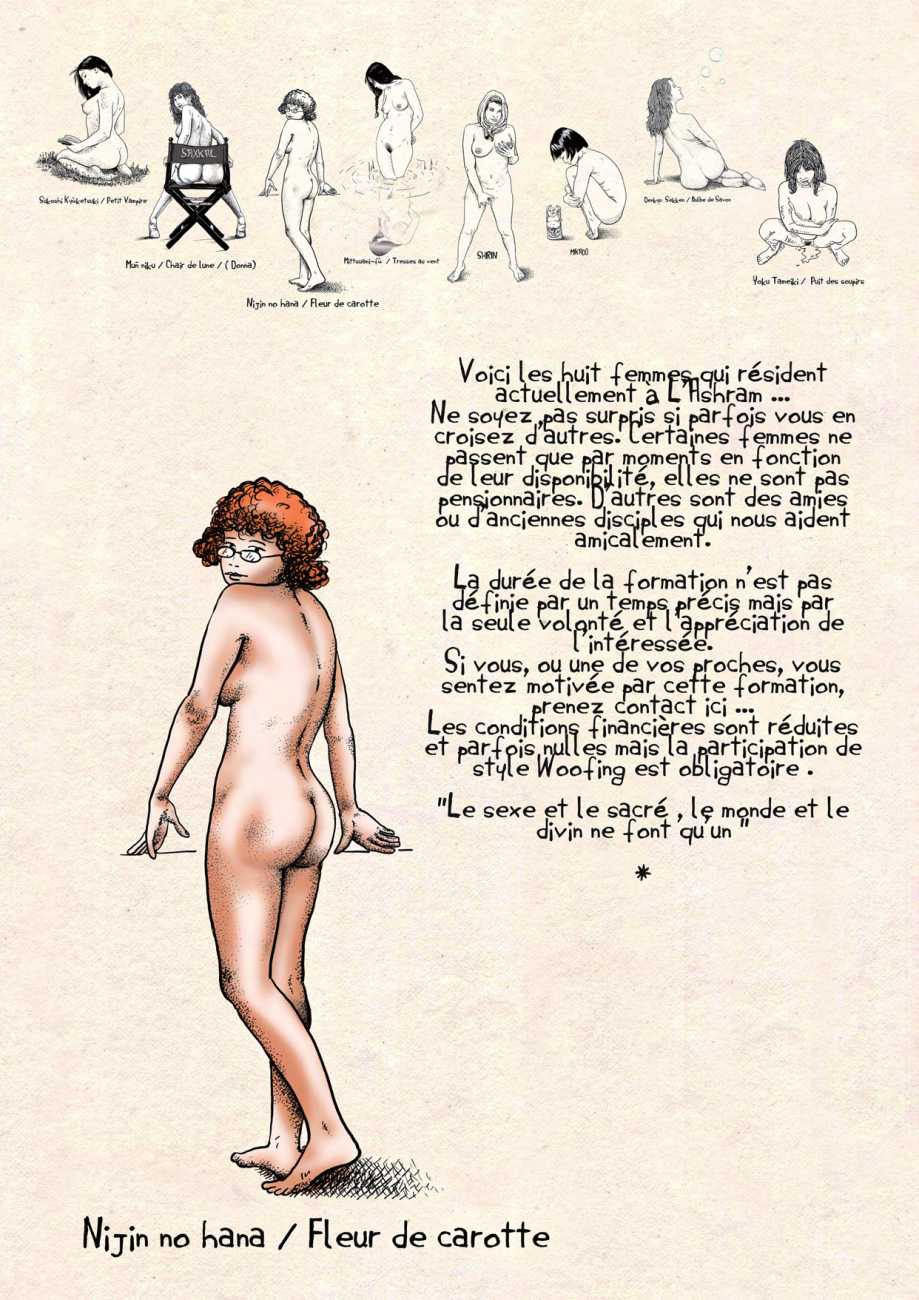 Satoshi Kyūketsuki / Petit Vampire
SAXKAL
Mun niku / Chair de lune / ( Donna)
Nijin no hana / Fleur de carotte
Mittsuami-fū / Tresses au vent
SHIRIN
MIKADO
Denkyū Sekken / Bulbe de Savon
Yoku Tameiki / Puit des soupirs
Voici les huit femmes qui résident
actuellement à L'Ashram ...
Ne soyez ,pas surpris si parfois vous en
croisez d'autres. Certaines femmes ne
passent que par moments en fonction
de leur disponibilité, elles ne sont pas
pensionnaires. D'autres sont des amies
ou d'anciennes disciples qui nous aident
amicalement.
La durée de la formation n'est pas
définie par un temps précis mais par
la seule volonté et l'appréciation de
l'intéressée.
Si vous, ou une de vos proches, vous
sentez motivée par cette formation,
prenez contact ici ...
Les conditions financières sont réduites
et parfois nulles mais la participation de
style Woofing est obligatoire .
"Le sexe et le sacré , le monde et le
divin ne font qu'un "
*
Nijin no hana / Fleur de carotte